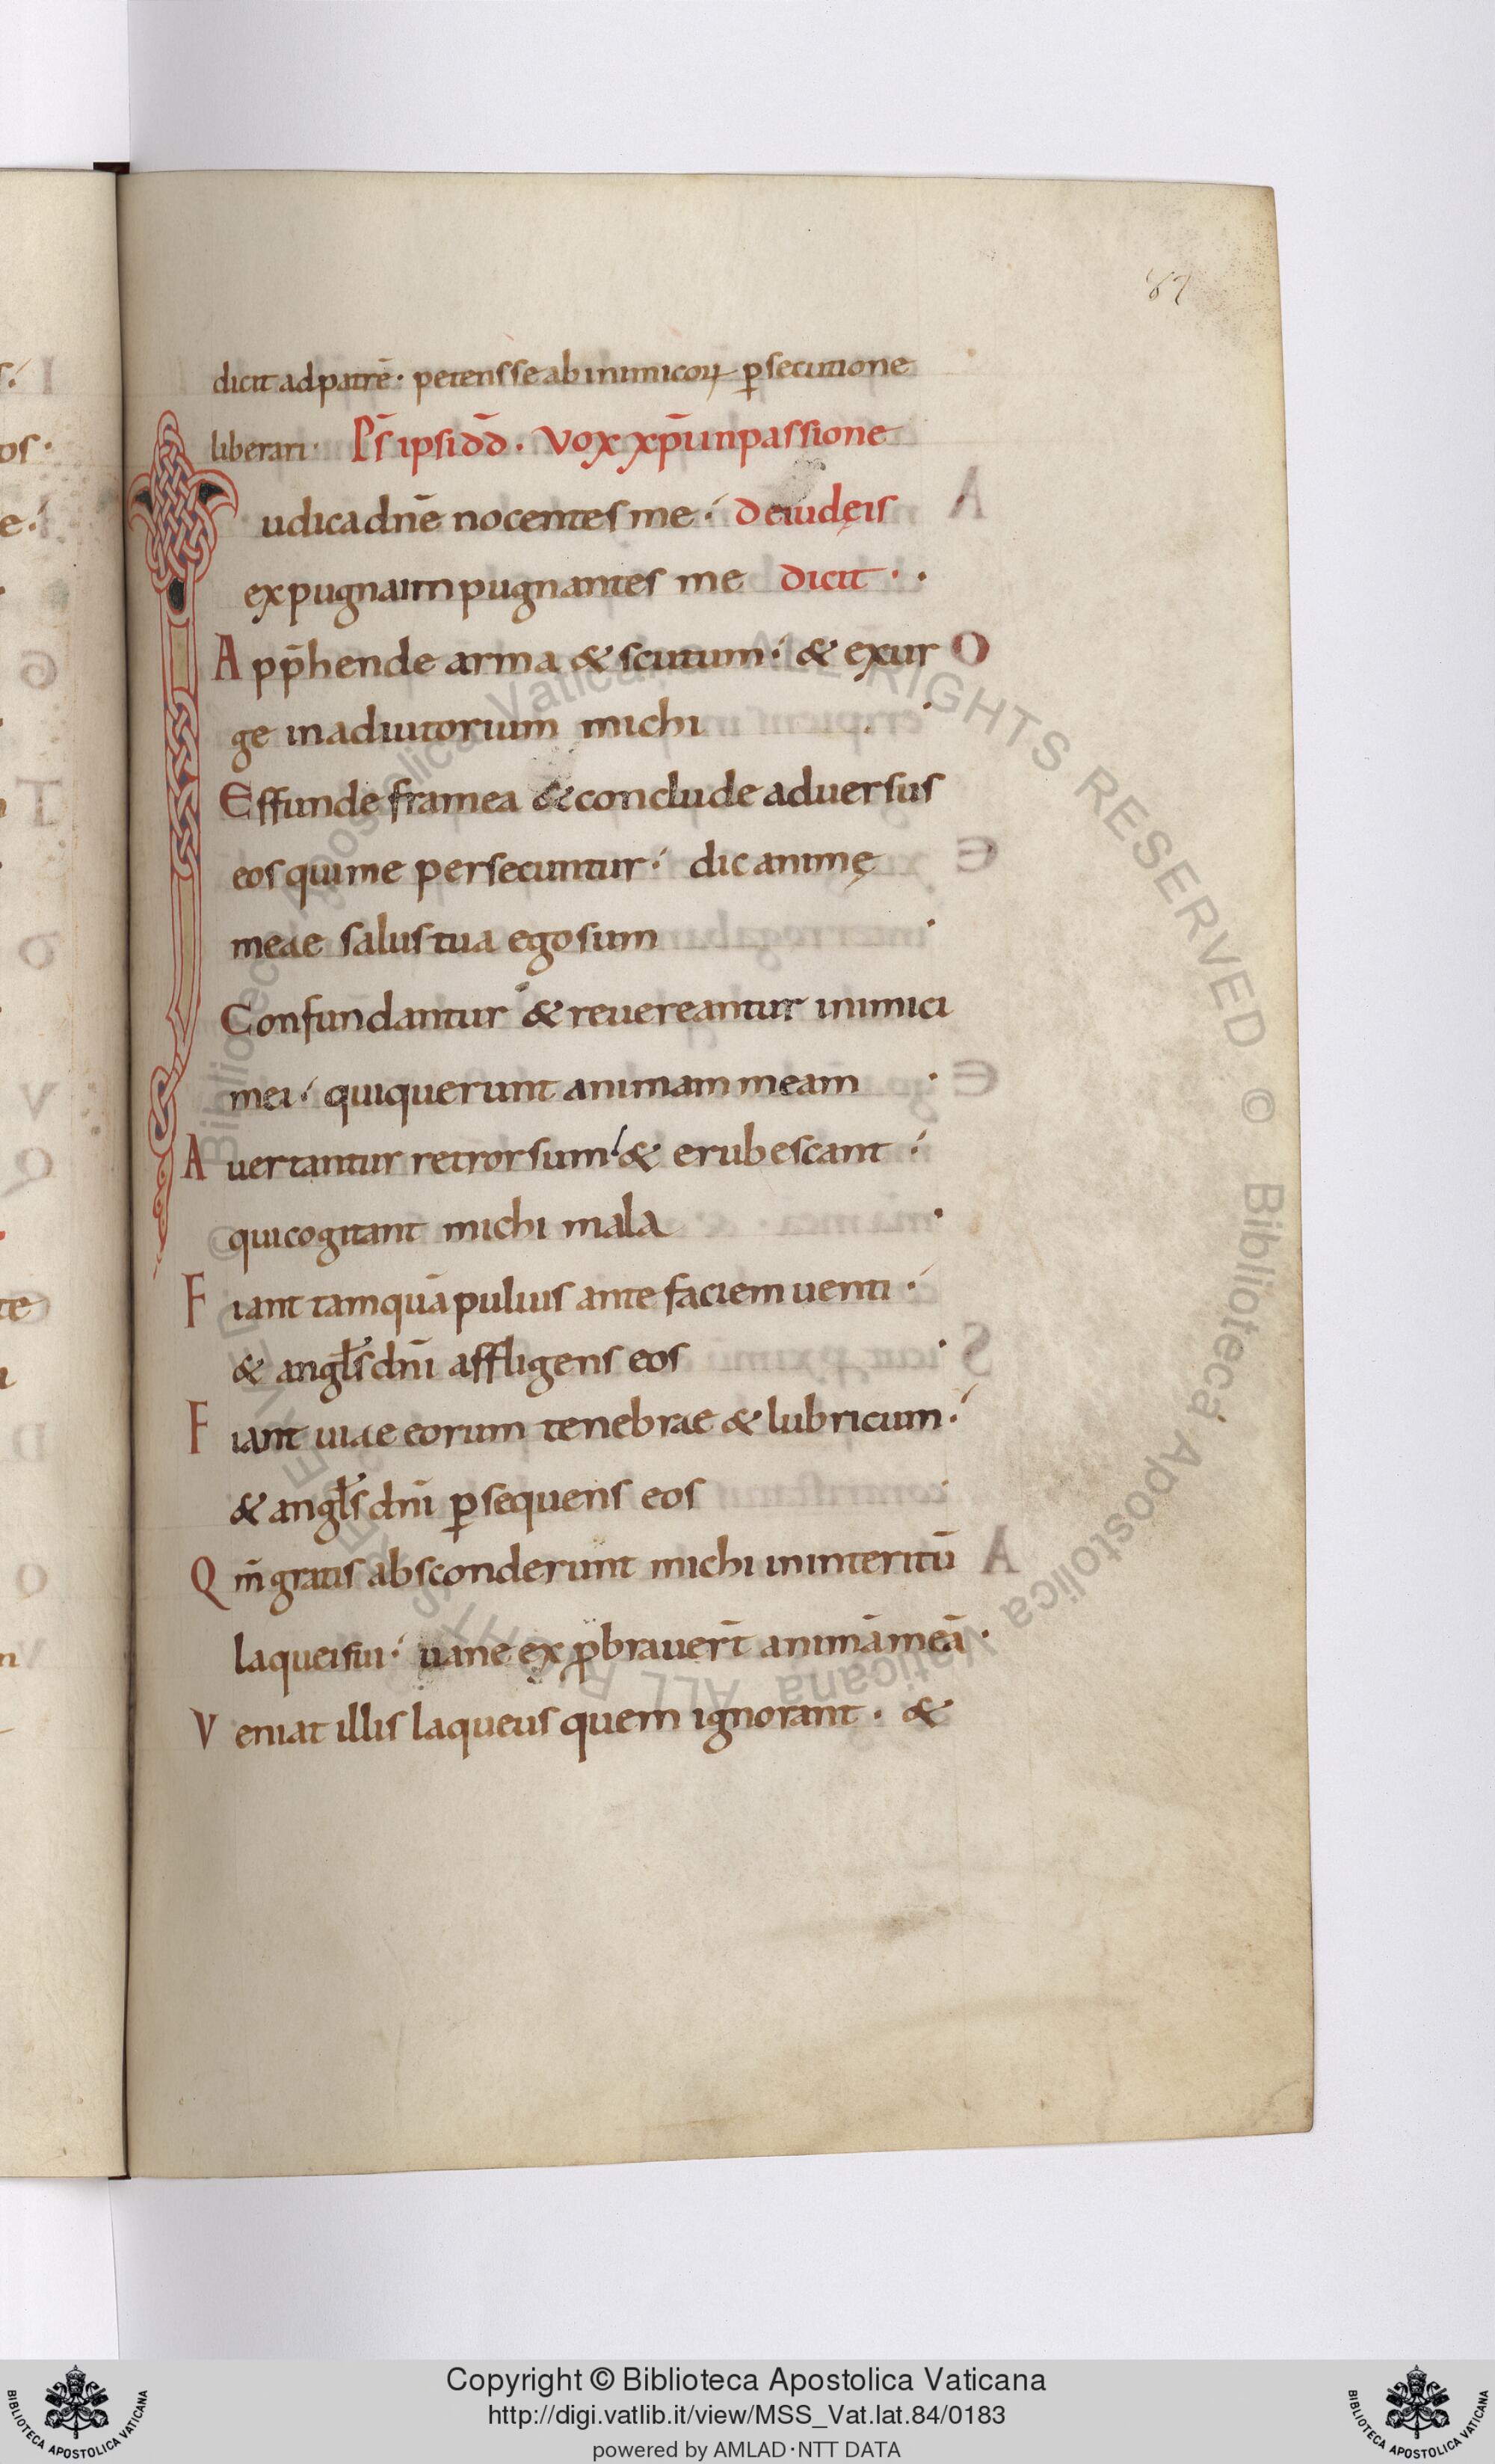 87
dicit ad patrē· petens se ab inimicoꝝ ꝑsecutione
liberari· Ps̄ ipsi dd̄· Vox xp̄i in passione
Iudica dn̄e nocentes me·/ de iudęis
expugna inpugnantes me dicit··
App̄hende arma & scutum·/ & exur
ge in adiutorium michi·
Effunde framea & conclude aduersus
eos qui me persecuntur·/ dic animę
meae salus tua ego sum·
Confundantur & reuereantur inimici
mei·/ qui querunt animam meam·
Auertantur retrorsum·/ & erubescant·/
qui cogitant michi mala·
Fiant tamquā puluis ante faciem uenti·/
& angl̄s dn̄i affligens eos·
Fiant uiae eorum tenebrae & lubricum·/
& angl̄s dn̄i ꝑsequens eos·
Qm̄ gratis absconderunt michi in interitū
laquei sui·/ uane exꝓbrauer̄t animā meā·
Veniat illis laqueus quem ignorant· &
© Biblioteca Apostolica Vaticana ALL RIGHTS RESERVED © Biblioteca Apostolica Vaticana ALL RIGHTS RESERVED
Copyright © Biblioteca Apostolica Vaticana
http://digi.vatlib.it/view/MSS_Vat.lat.84/0183
powered by AMLAD·NTT DATA
BIBLIOTECA APOSTOLICA VATICANA
BIBLIOTECA APOSTOLICA VATICANA